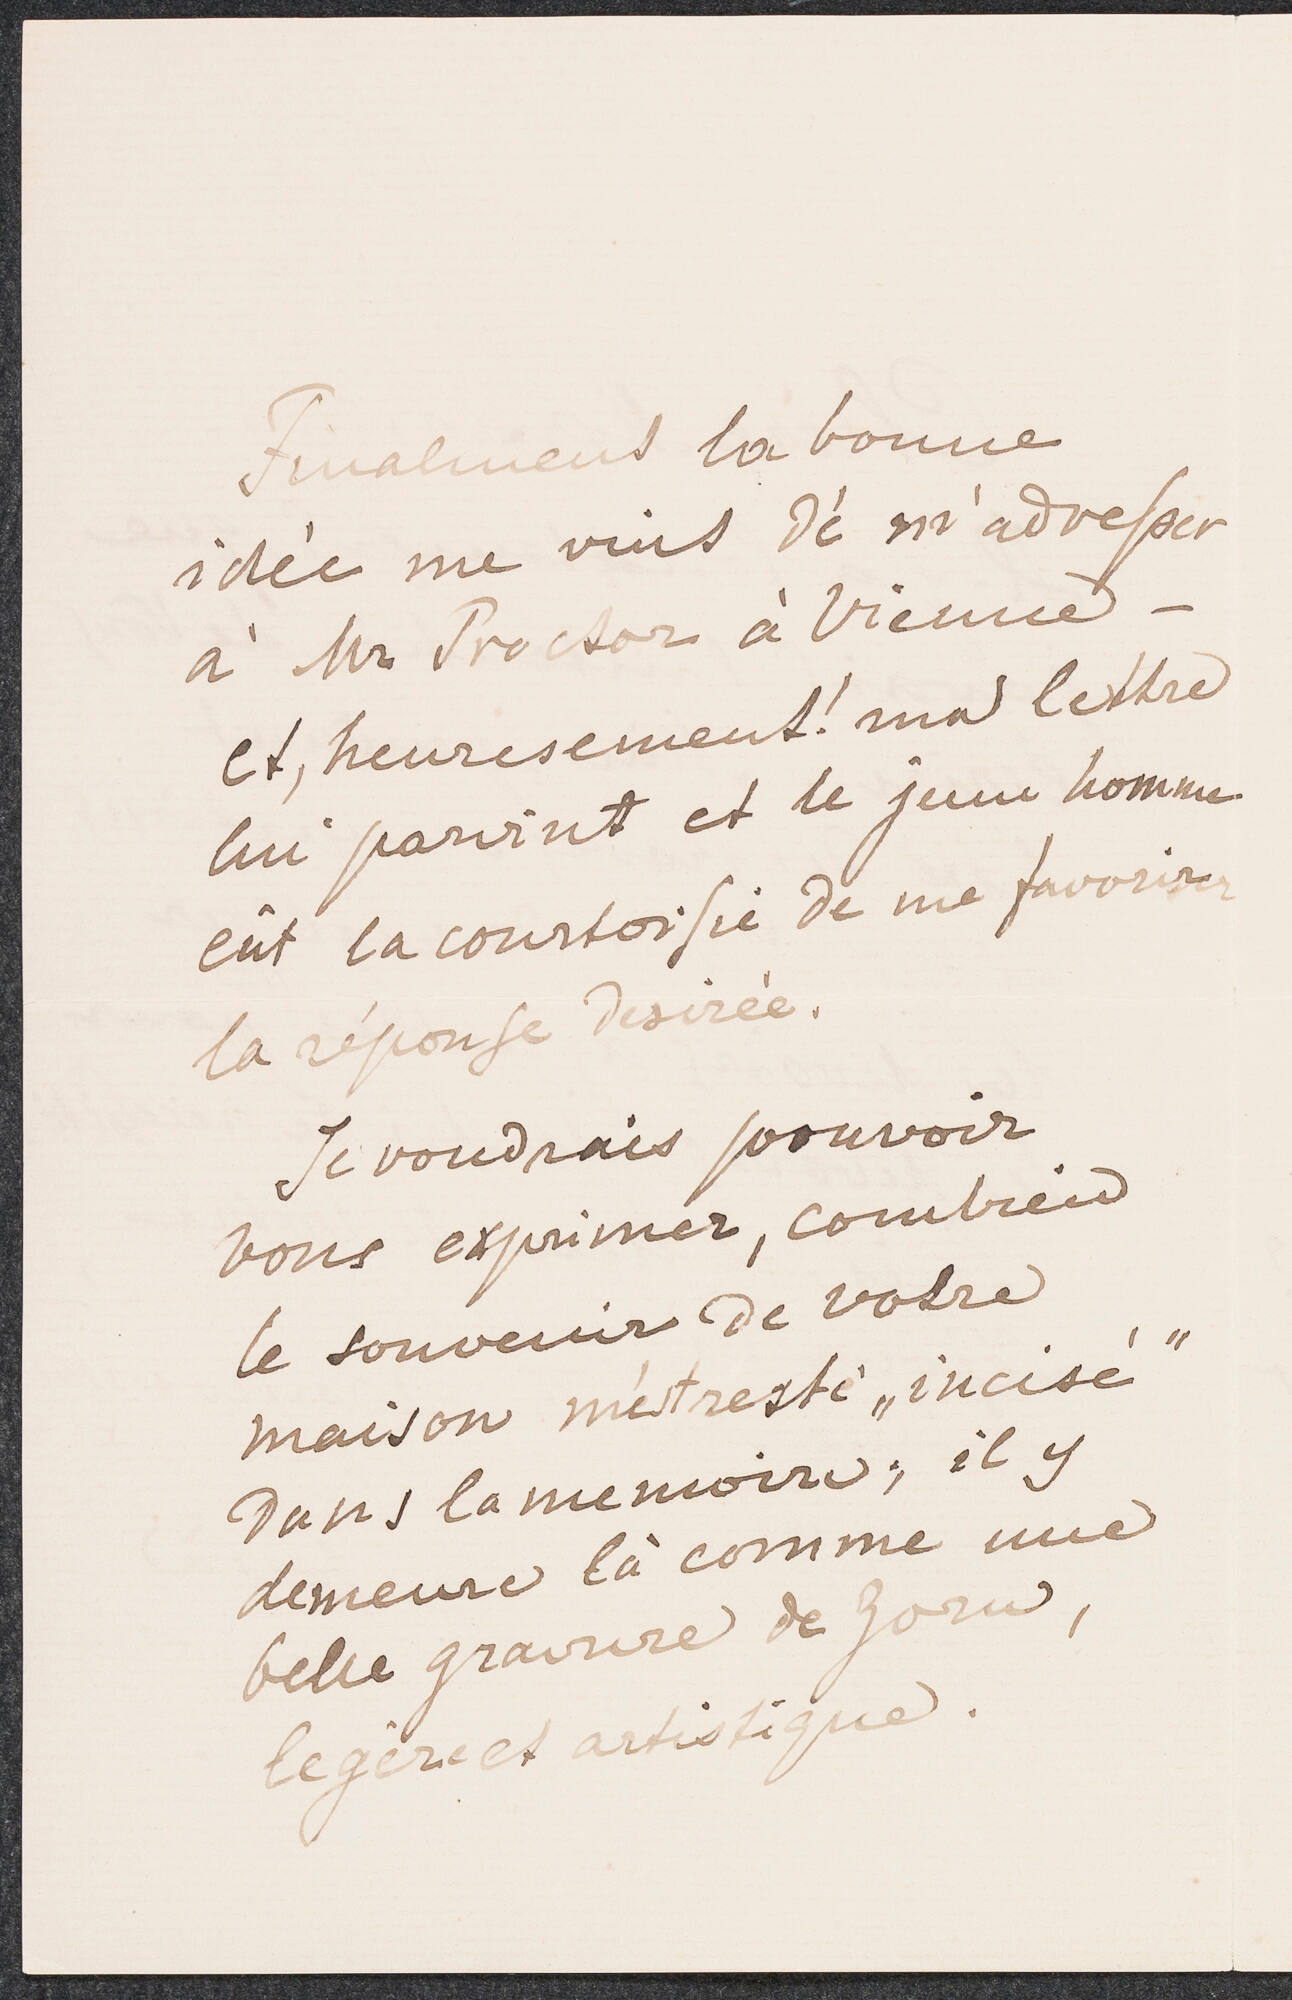 Finalment la bonne
idée me vint de m'adresser
à Mr Proctor à Vienne –
et, heuresement! ma lettre
lui parvint et le jeune homme
eût la courtoisie de me favoriser
la réponse desirée.
Je voudrais pouvoir
vous exprimer, combien
le souvenir de votre
maison m'est resté „incisé"
dans la memoire; il y
demeure là comme une
belle gravure de Zorn,
legère et artistique.